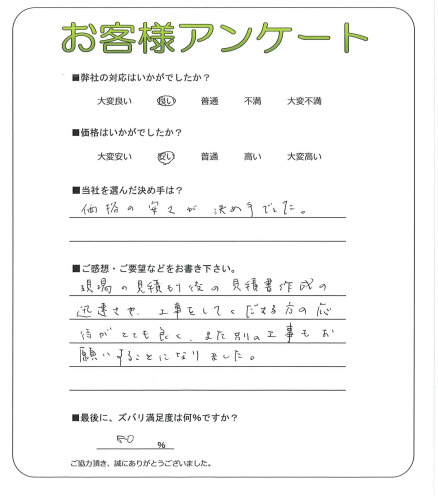 お客様アンケート
■弊社の対応はいかがでしたか？
大変良い 良い 普通 不満 大変不満
■価格はいかがでしたか？
大変安い 安い 普通 高い 大変高い
■当社を選んだ決め手は？
価格の安さが決め手でした。
■ご感想・ご要望などをお書き下さい。
現場の見積もり後の見積書作成の
迅速さや、工事をしてくださる方の応
待がとても良く、また別の工事もお
願いすることになりました。
■最後に、ズバリ満足度は何%ですか？
80 %
ご協力頂き、誠にありがとうございました。